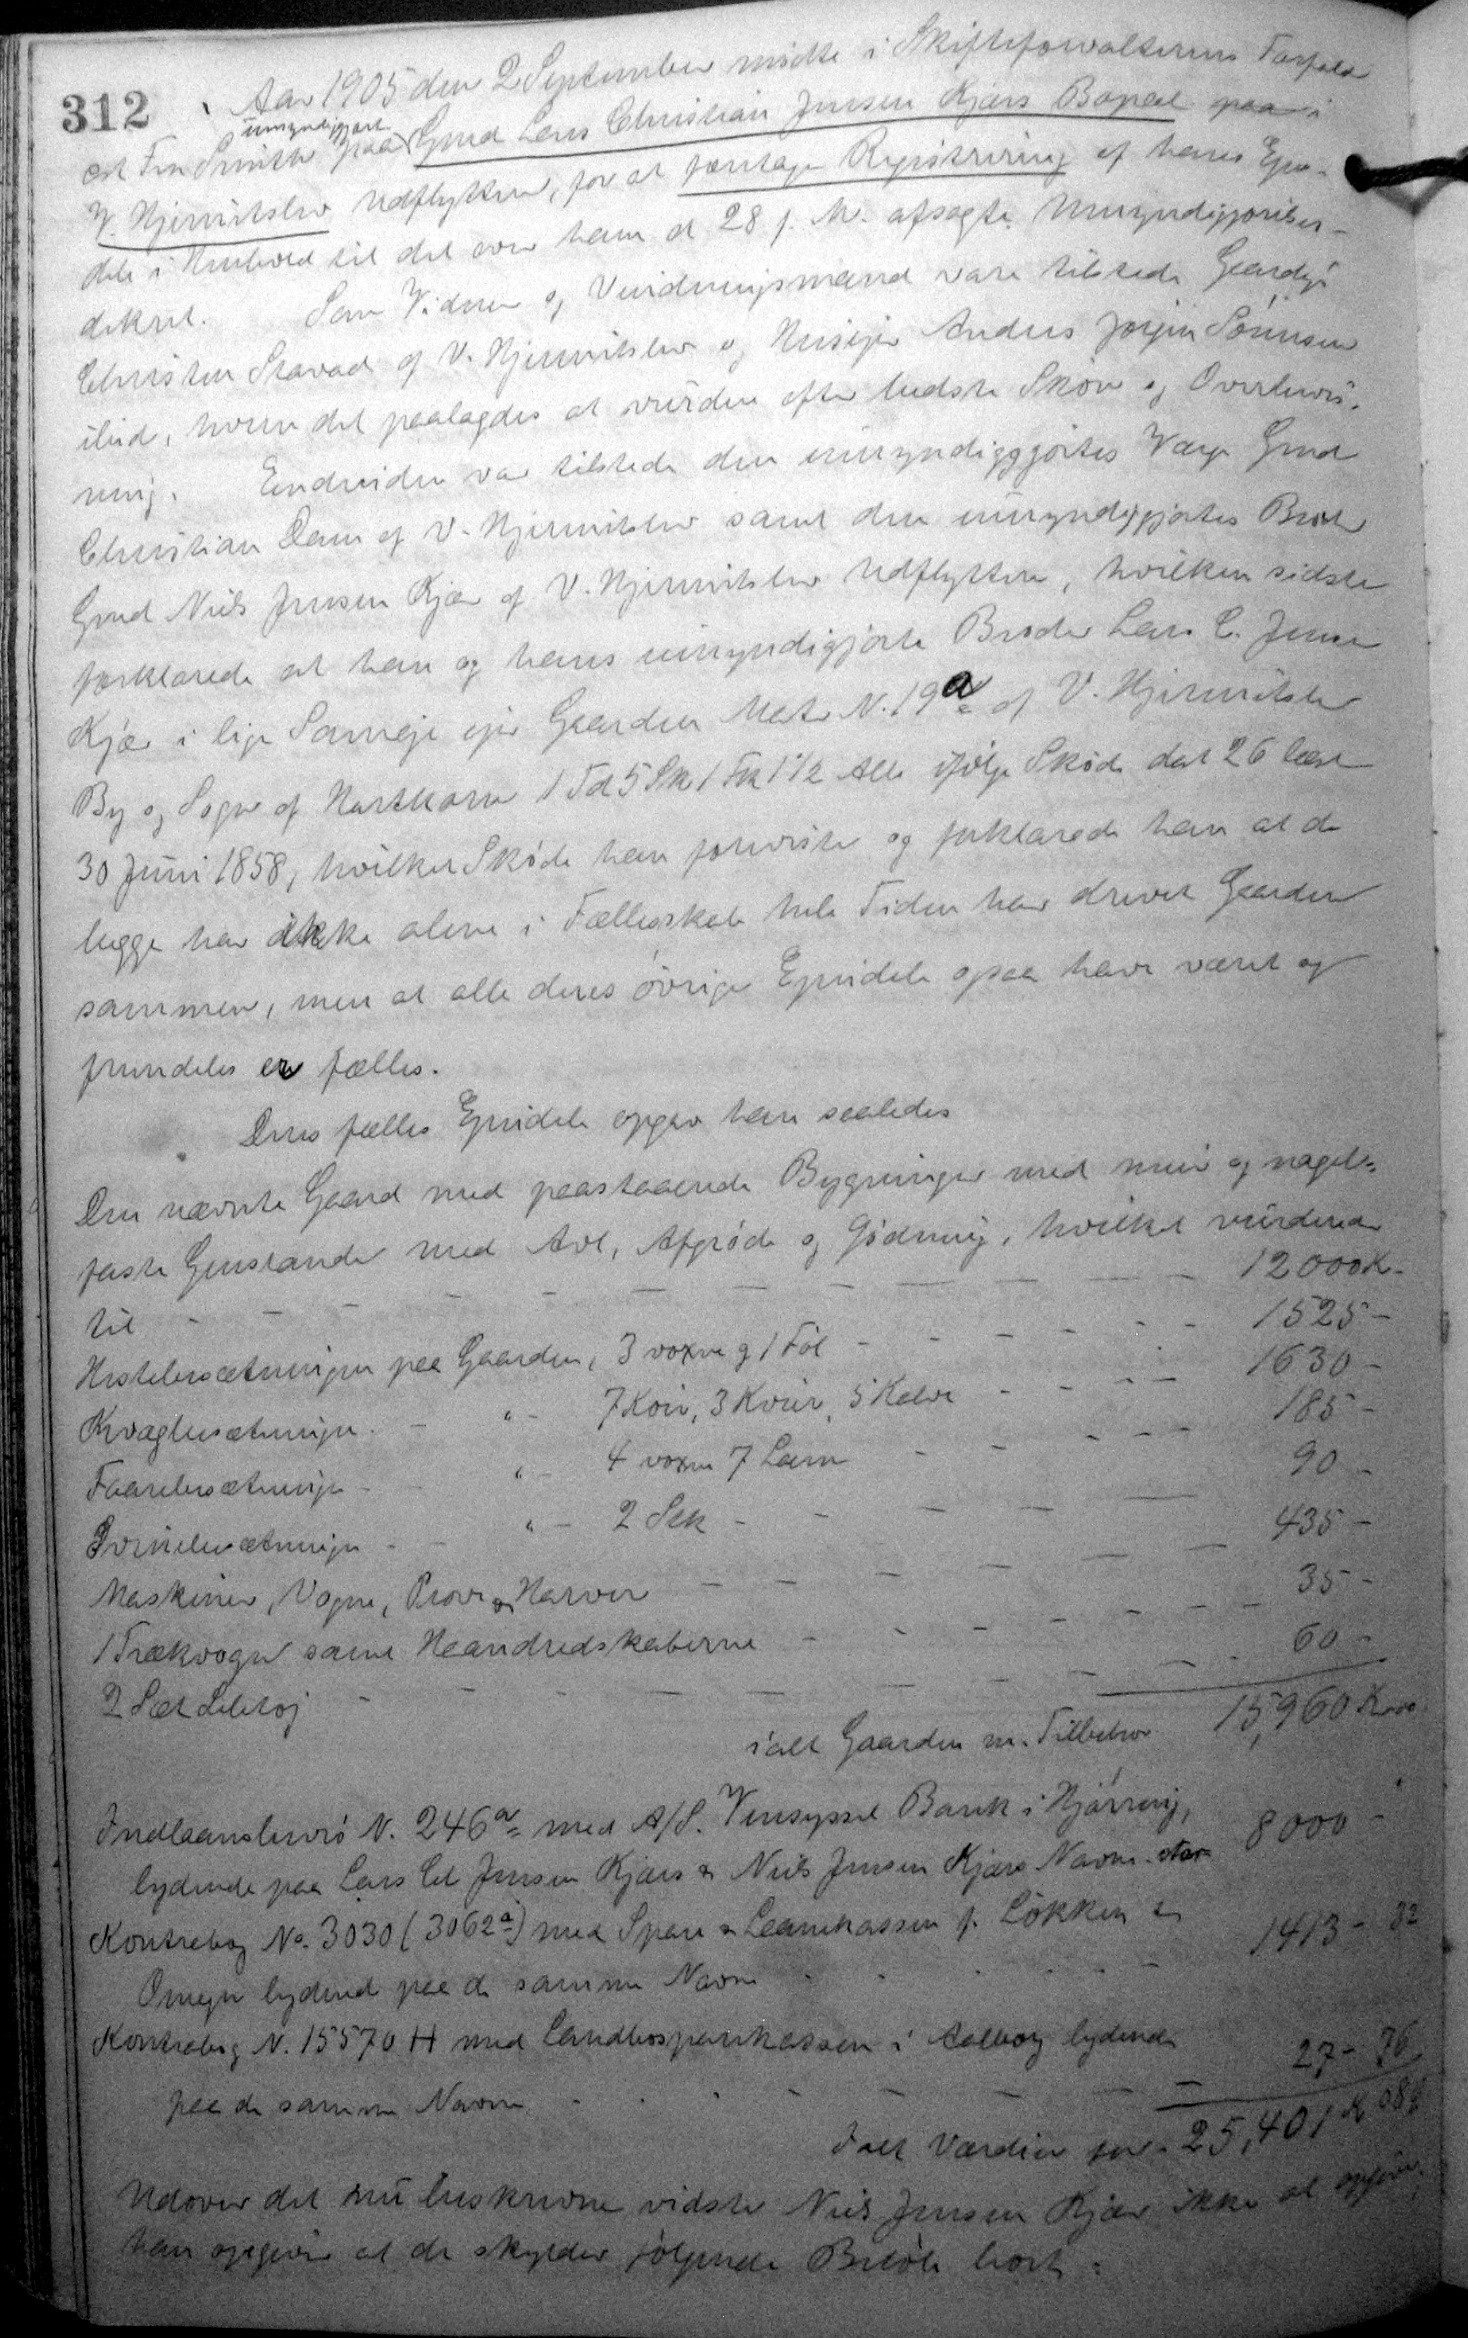 312
Aar 1905 den 2 September mødte i Skifteforvalterens Forfald
umyndiggjort
Smith paa Gmd Lars Christian Jensen Kjærs Bopæl paa i
V. Hjermitslev Udflyttere, for at foretage Registrering af hans Ejen-
dele i Henhold til det over ham d 28 f. M. afsagte Umyndiggjørelses-
dekret. Som Vidner og Vurderingsmænd vare tilstede Gaardejr
Christen Stavad af V. Hjermitslev og Husejer Anders Jørgen Sørensen
ibid, hvem det paalagdes at vurdere efter bedste Skøn og Overbevis-
ning. Endvidere var tilstede den umyndiggjortes Værge Gmd
Christian Dam af V. Hjermitslev samt den umyndiggjortes Broder
Gmd Niels Jensen Kjær af V. Hjermitslev Udflyttere, hvilken sidste
forklarede at han og hans umyndiggjorte Broder Lars C. Jensen
Kjær i lige Sameje ejer Gaarden Matr N. 19a af V. Hjermitslev
By og Sogn af Hartkorn 1 Td 5 Sk 1 Fk 1 1/2 Alb ifølge Skøde dat 26 læst
30 Juni 1858, hvilket Skøde han foreviste og forklarede han at de
begge har ikke alene i Fællesskab hele Tiden har drevet Gaarden
sammen, men at alle deres øvrige Ejendele ogsaa have været og
fremdeles er fælles.
Deres fælles Ejendele opgav han saaledes
Den nævnte Gaard med paastaaende Bygninger med mur og nagel-
faste Genstande med Avl, Afgrøde og Gødning, hvilket vurderedes
til - - - 12000 K -
Hestebesætningen paa Gaarden, 3 voxne og 1 Føl - - 1525 -
Kvægbesætningen - " - 7 Køer, 3 Kvier, 5 Kalve - - 1630 -
Faarebesætningen - " - 4 voxne 7 Lam - - 185 -
Svinebesætningen - " - 2 Stk - - 90 -
Maskiner, Vogne, Plove & Harver - - 435 -
1 Trækvogn samt Haandredskaberne - - 35 -
2 Sæt Seletøj - - 60 -
ialt Gaarden m. Tilbehør 15,960 Kr
Indlaansbevis N. 246a med A/S. Vensyssel Bank i Hjørring,
lydende paa Lars Chr Jensen Kjærs & Niels Jensen Kjærs Navne 8000 -
Kontrabog No. 3030 (3062a) med Spare & Laanekassen f. Løkken &
Omegn lydende paa de samme Navne - - 1413 - 32
Kontrabog N. 15570 H med Landbosparekassen i Aalborg lydende
paa de samme Navne - - 27 - 76
Ialt Værdier for 25,401 K 08
Udover det nu beskrevne vidste Niels Jensen Kjær ikke at opgive,
han opgiver at de skylder følgende Beløb bort: